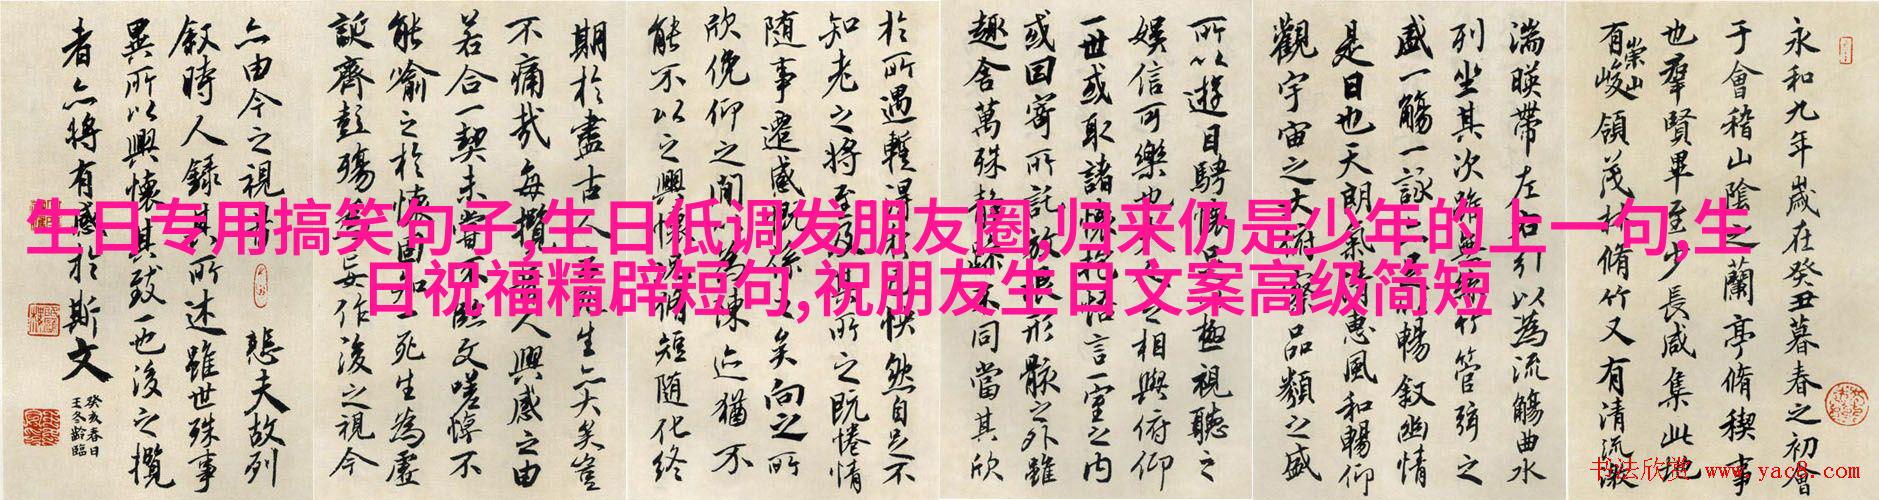 永和九年歲在癸丑暮春之初會
于會稽山陰之蘭亭脩稧事
也羣賢畢至少長咸集此地
有崇山峻領茂林脩竹又有清流激
湍暎帶左右引以為流觴曲水
列坐其次雖無絲竹管弦之
盛一觴一詠亦足以暢敘幽情
是日也天朗氣清惠風和暢仰
觀宇宙之大俯察品類之盛
所以遊目騁懷足以極視聽之
娛信可樂也夫人之相與俯仰
一世或取諸懷抱悟言一室之內
或因寄所託放浪形骸之外雖
趣舍萬殊靜躁不同當其欣
於所遇暫得於己快然自足不
知老之將至及其所之既惓情
隨事遷感慨係之矣向之所
欣俛仰之間以為陳迹猶不
能不以之興懷況脩短隨化終
期於盡古人云死生亦大矣豈
不痛哉每攬昔人興感之由
若合一契未嘗不臨文嗟悼不
能喻之於懷固知一死生為虛
誕齊彭殤為妄作後之視今
亦由今之視昔 悲夫故列
敘時人錄其所述雖世殊事
異所以興懷其致一也後之攬
者亦將有感於斯文
癸亥春日
王冬齡臨
生日专用搞笑句子,生日低调发朋友圈,归来仍是少年的上一句,生
日祝福精辟短句,祝朋友生日文案高级简短
书法欣赏 www.yac8.com